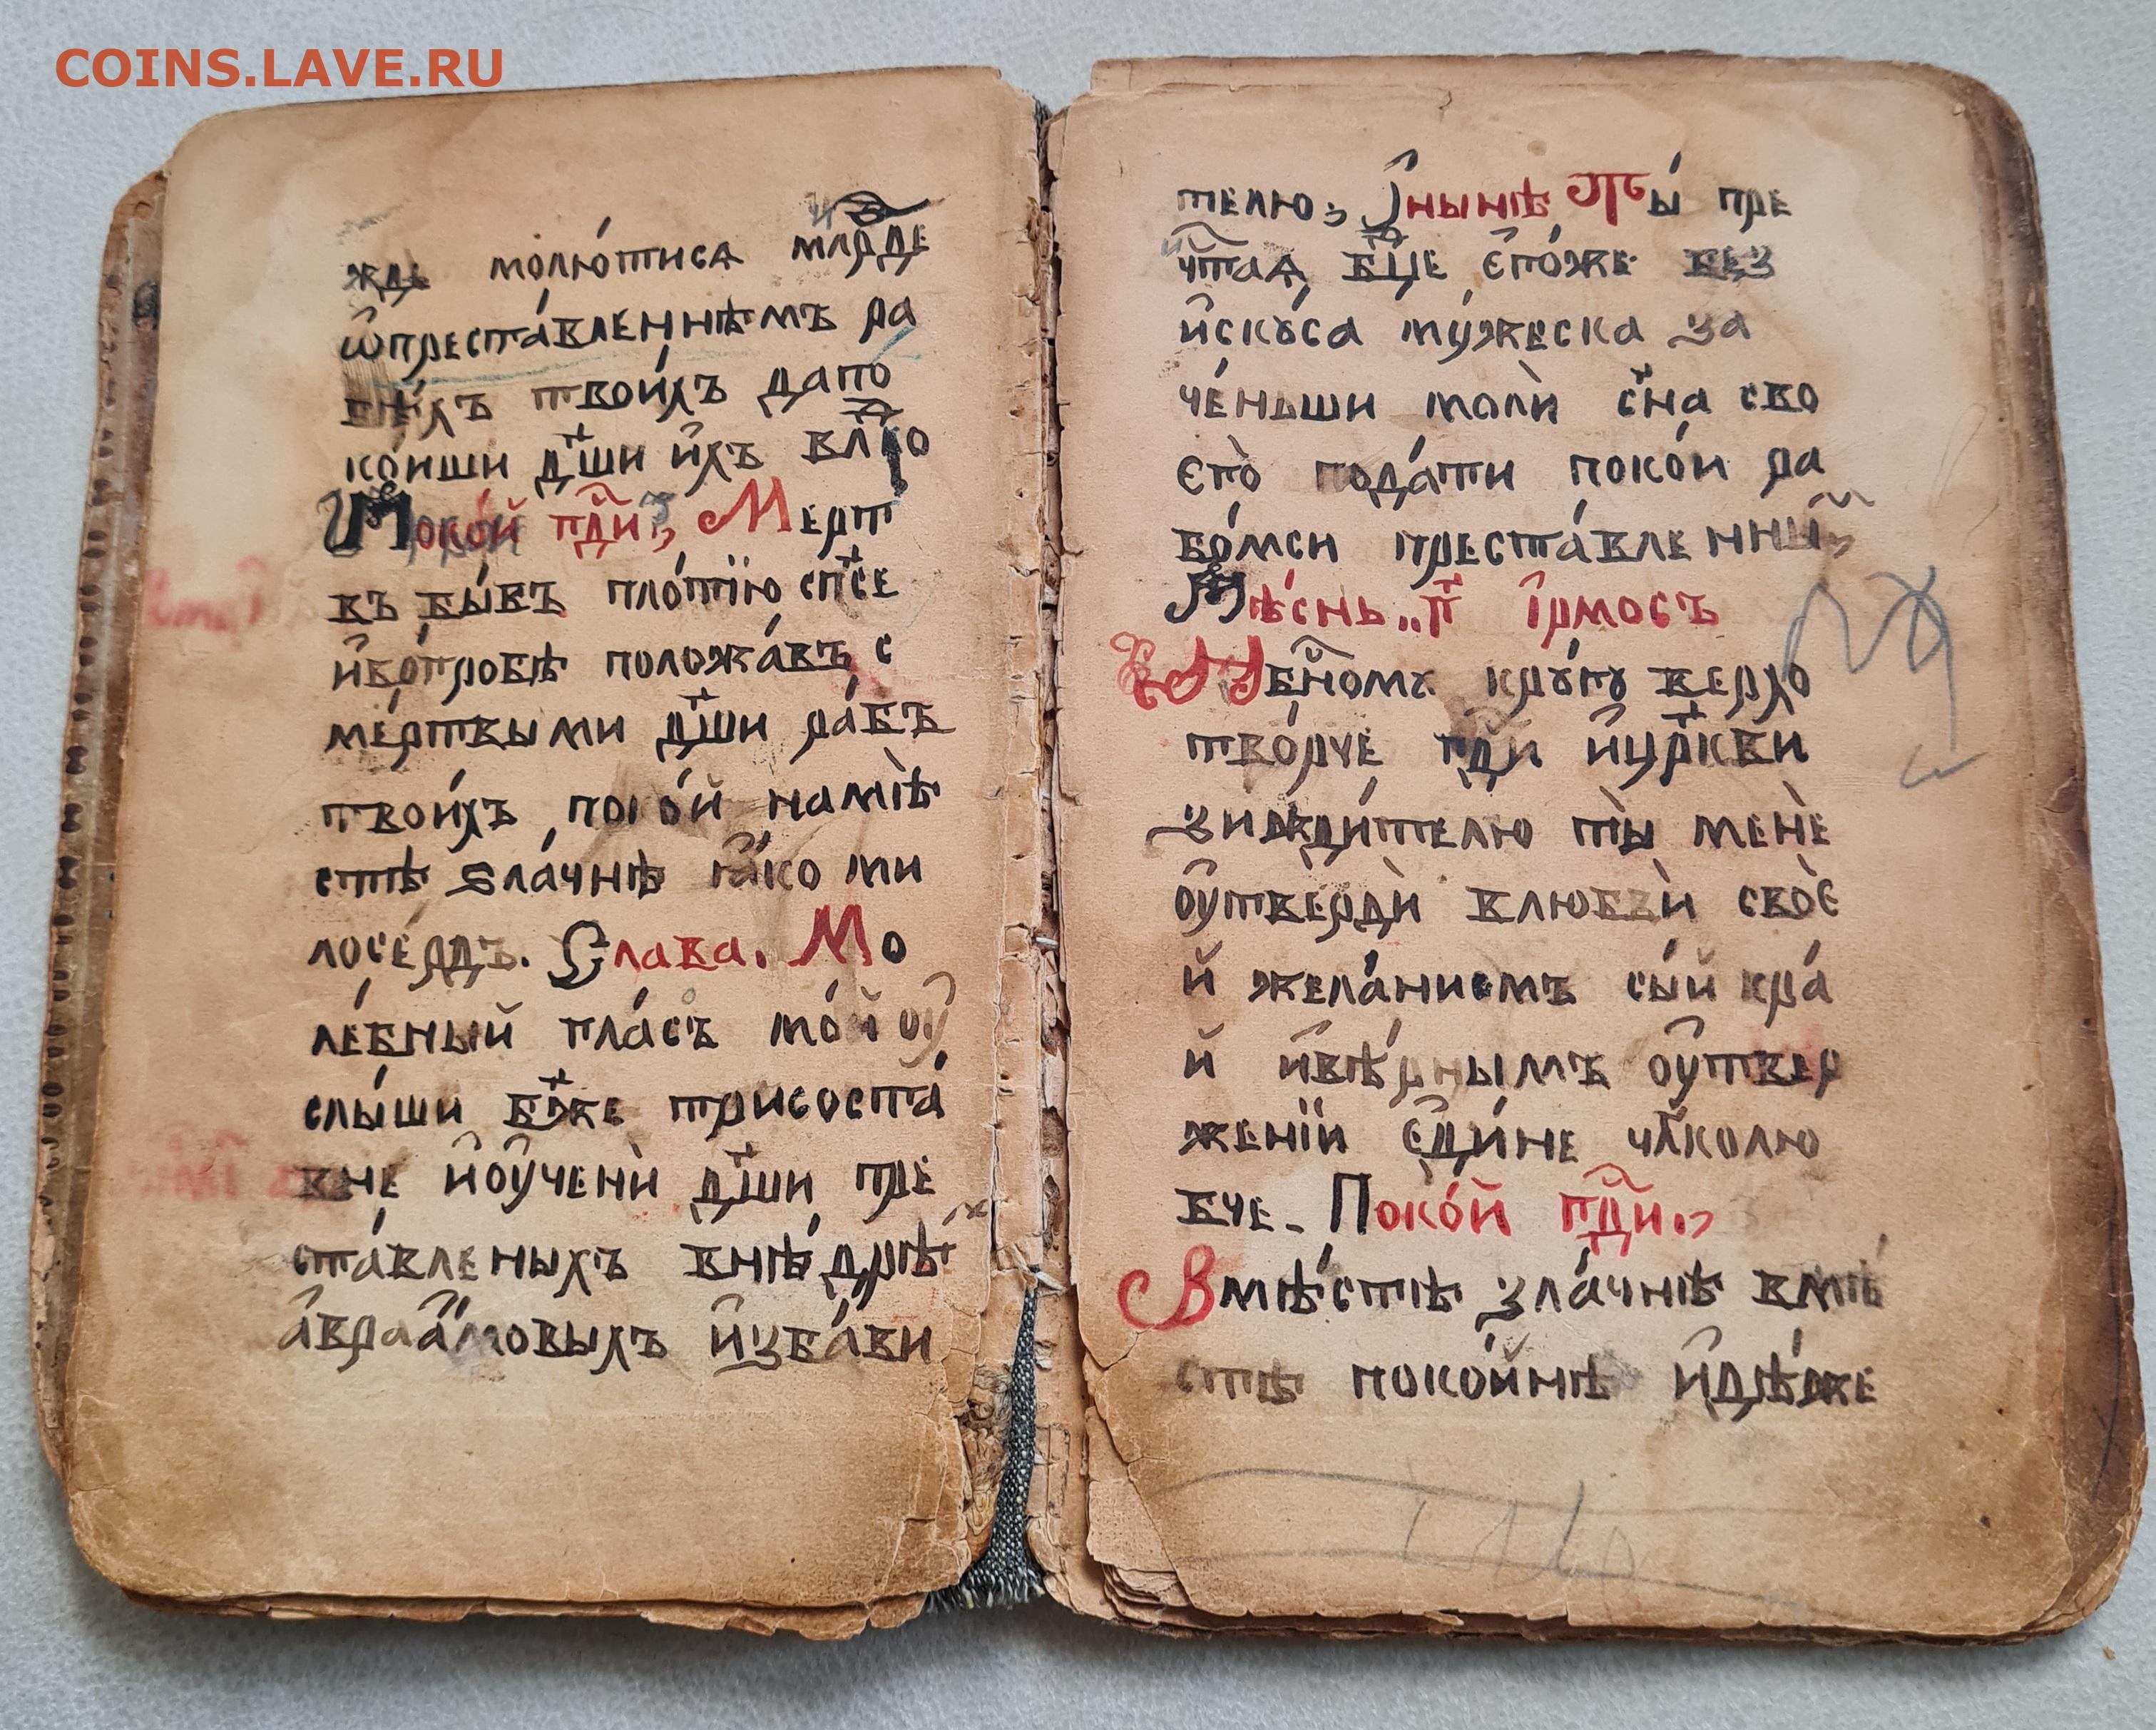 COINS.LAVE.RU
жде молю́тисѧ млрде
ѽпреста́вленнѣмъ ра
бѣ́хъ твои́хъ дапо
ко́иши дш҃и и҆́хъ влⷣко
Поко́й гдⷭ҇и, Мерт
въ бы́въ пло́тїю сп҃се
и҆во́гробѣ положа́въ с
ме́ртвыми дш҃и ра́бъ
твои́хъ поко́й намѣ
стѣ ѕла́чнѣ ꙗ҆́ко ми
лосе́рдъ. Слава. Мо
ле́бный гла́съ мо́й ѹ҆
слы́ши бж҃е трисоста́
вне и҆ѹ҆ченѝ дш҃и пре
ста́вленыхъ внѣ́дрѣ
а҆враа҆́мовыхъ и҆зба́ви
телю, Iнынѣ Ты́ пре
чтⷭ҇аѧ бц҃е є҆го́же без
и҆скꙋ́са мꙋ́жеска за
че́ньши молѝ сн҃а сво
єго̀ пода́ти поко́и ра
бо́мси преста́вленный,
Пѣ́снь г҃ і҆рмосъ
Нбⷭ҇номꙋ крꙋ́гꙋ верхо
тво́рче гдⷭ҇и и҆цр҃кви
зижди́телю ты̀ менѐ
ѹ҆твердѝ влюбвѝ своѐ
й жела́ниемъ сы́й кра́
й и҆вѣ́рнымъ ѹ҆твер
женїи є҆ди́не чл҃колю
бче. Поко́й гдⷭ҇и.,
Вмѣ́стѣ зла́чнѣ вмѣ
стѣ поко́йнѣ и҆дѣ́же